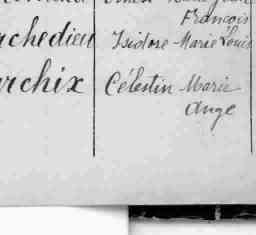 François
chedieu Isidore Marie Louis
rchix Célestin Marie
Ange